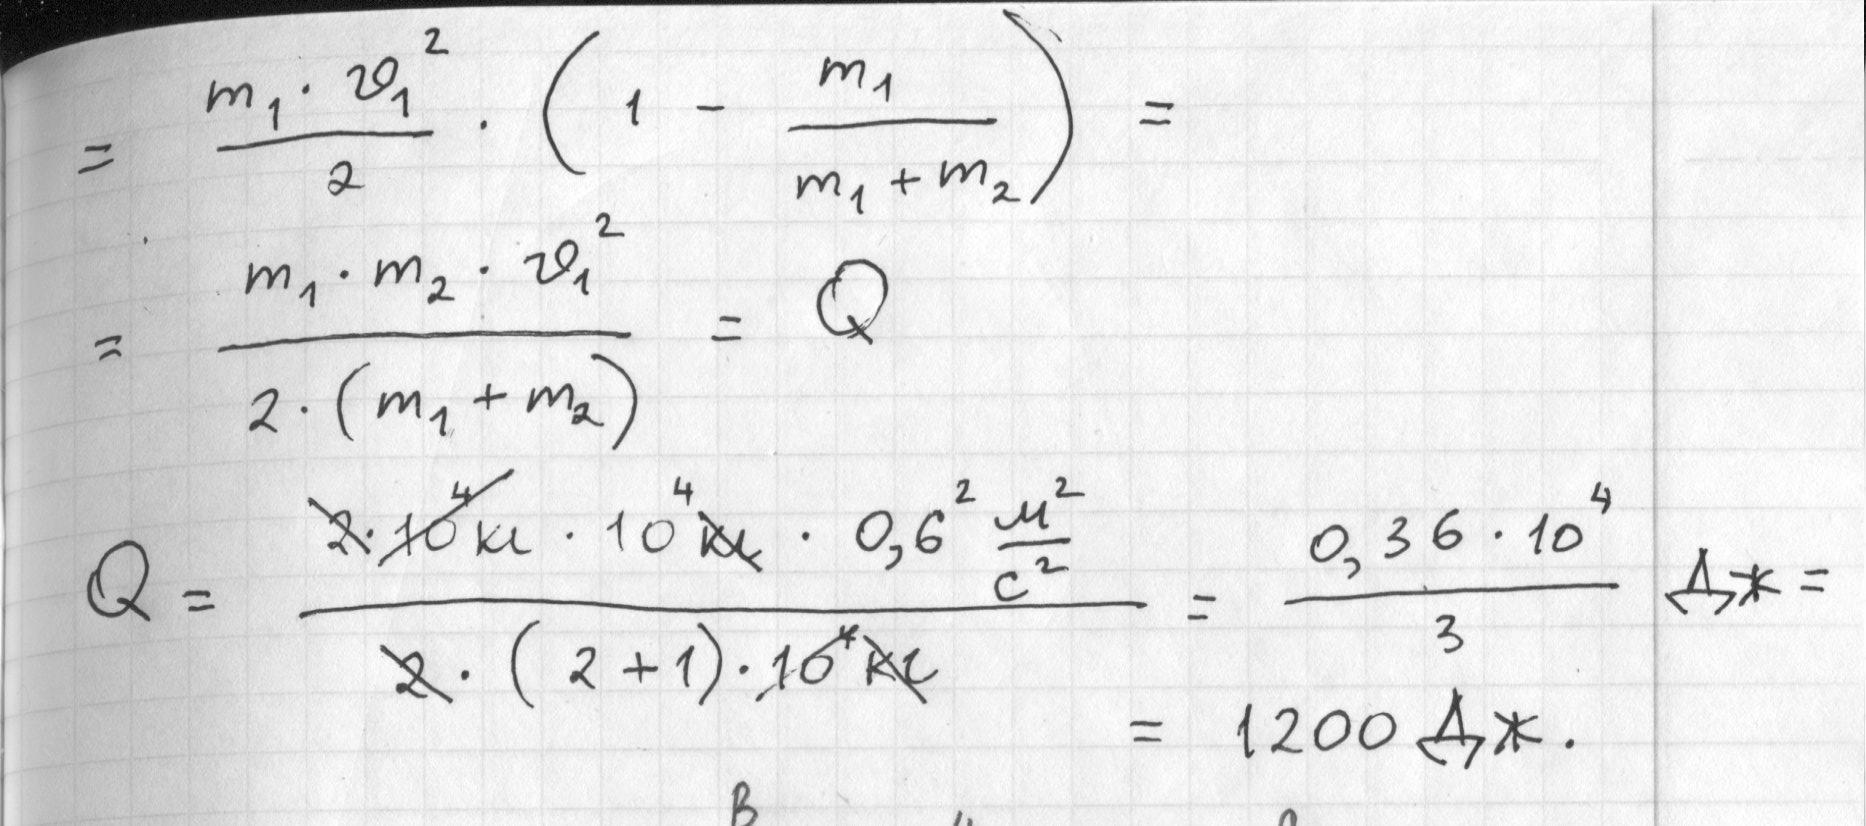 = m₁ · v₁² / 2 · (1 - m₁ / (m₁ + m₂)) =
= m₁ · m₂ · v₁² / (2 · (m₁ + m₂)) = Q
Q = 2 · 10⁴ кг · 10⁴ кг · 0,6² м²/с² / (2 · (2 + 1) · 10⁴ кг) = 0,36 · 10⁴ / 3 Дж =
= 1200 Дж.